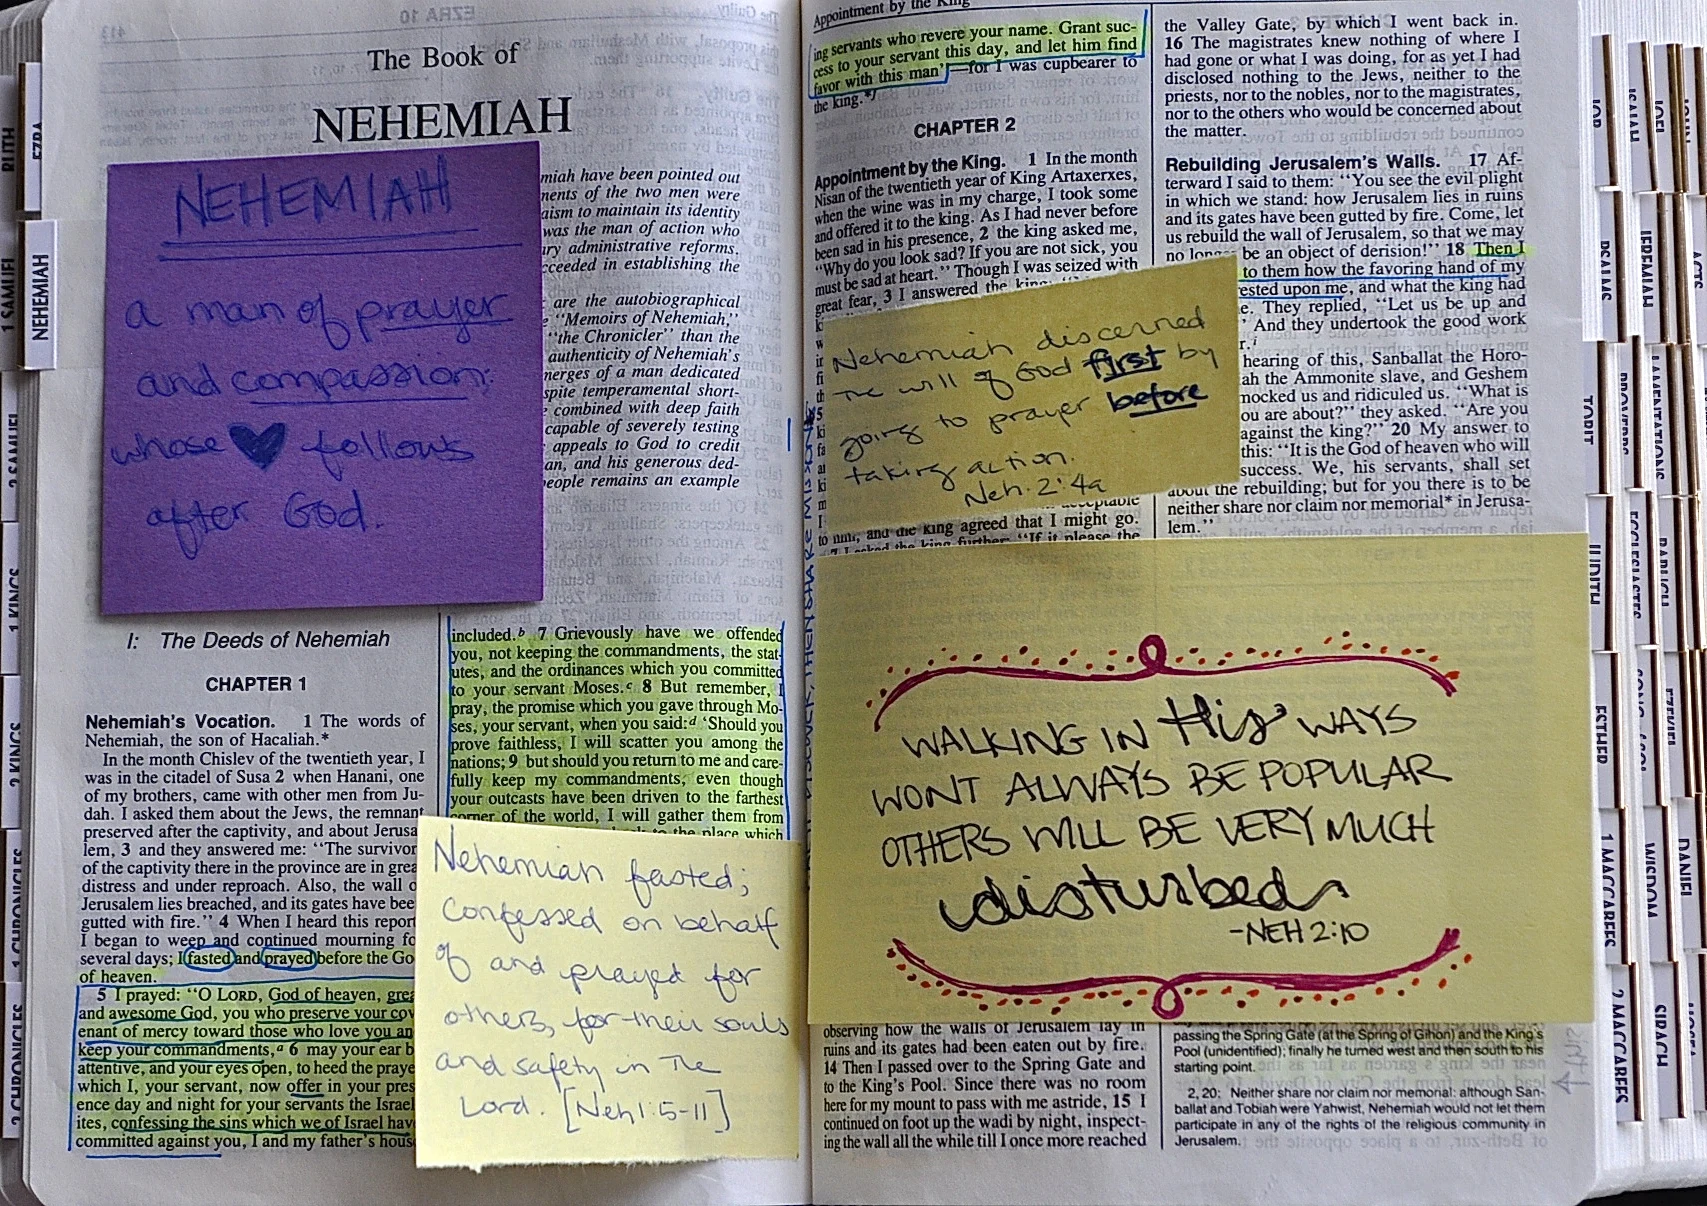 The Book of
NEHEMIAH
NEHEMIAH
a man of prayer
and compassion;
whose follows
after God.
miah have been pointed out
ments of the two men were
aism to maintain its identity
was the man of action who
ry administrative reforms.
ceeded in establishing the
are the autobiographical
"Memoirs of Nehemiah,"
"the Chronicler" than the
authenticity of Nehemiah's
merges of a man dedicated
spite temperamental short-
combined with deep faith
capable of severely testing
appeals to God to credit
an, and his generous ded-
people remains an example
I: The Deeds of Nehemiah
CHAPTER 1
Nehemiah's Vocation. 1 The words of
Nehemiah, the son of Hacaliah.*
In the month Chislev of the twentieth year, I
was in the citadel of Susa 2 when Hanani, one
of my brothers, came with other men from Ju-
dah. I asked them about the Jews, the remnant
preserved after the captivity, and about Jerusa
lem, 3 and they answered me: "The survivor
of the captivity there in the province are in grea
distress and under reproach. Also, the wall o
Jerusalem lies breached, and its gates have bee
gutted with fire." 4 When I heard this report
I began to weep and continued mourning fo
several days; I fasted and prayed before the Go
of heaven.
5 I prayed: "O LORD, God of heaven, grea
and awesome God, you who preserve your cov
enant of mercy toward those who love you an
keep your commandments,a 6 may your ear b
attentive, and your eyes open, to heed the praye
which I, your servant, now offer in your pres
ence day and night for your servants the Israel
ites, confessing the sins which we of Israel hav
committed against you, I and my father's hous
included.b 7 Grievously have we offended
you, not keeping the commandments, the stat-
utes, and the ordinances which you committed
to your servant Moses.c 8 But remember, I
pray, the promise which you gave through Mo-
ses, your servant, when you said:d 'Should you
prove faithless, I will scatter you among the
nations; 9 but should you return to me and care-
fully keep my commandments, even though
your outcasts have been driven to the farthest
corner of the world, I will gather them from
to the place which
Nehemiah fasted;
confessed on behalf
of and prayed for
others, for their souls
and safety in the
Lord. [Neh 1:5-11]
Appointment by the King
ing servants who revere your name. Grant suc-
cess to your servant this day, and let him find
favor with this man'—for I was cupbearer to
the king.*f
CHAPTER 2
Appointment by the King. 1 In the month
Nisan of the twentieth year of King Artaxerxes,
when the wine was in my charge, I took some
and offered it to the king. As I had never before
been sad in his presence, 2 the king asked me,
"Why do you look sad? If you are not sick, you
must be sad at heart." Though I was seized with
great fear, 3 I answered the king:
Nehemiah discerned
the will of God first by
going to prayer before
taking action.
Neh. 2:4a
acceptable
to him, and the king agreed that I might go.
7 I asked the king further: "If it please the
WALKING IN His WAYS
WONT ALWAYS BE POPULAR
OTHERS WILL BE VERY MUCH
disturbed
-NEH 2:10
observing how the walls of Jerusalem lay in
ruins and its gates had been eaten out by fire.
14 Then I passed over to the Spring Gate and
to the King's Pool. Since there was no room
here for my mount to pass with me astride, 15 I
continued on foot up the wadi by night, inspect-
ing the wall all the while till I once more reached
the Valley Gate, by which I went back in.
16 The magistrates knew nothing of where I
had gone or what I was doing, for as yet I had
disclosed nothing to the Jews, neither to the
priests, nor to the nobles, nor to the magistrates,
nor to the others who would be concerned about
the matter.
Rebuilding Jerusalem's Walls. 17 Af-
terward I said to them: "You see the evil plight
in which we stand: how Jerusalem lies in ruins
and its gates have been gutted by fire. Come, let
us rebuild the wall of Jerusalem, so that we may
no longer be an object of derision!" 18 Then I
to them how the favoring hand of my
ested upon me, and what the king had
e. They replied, "Let us be up and
' And they undertook the good work
r.i
hearing of this, Sanballat the Horo-
ah the Ammonite slave, and Geshem
mocked us and ridiculed us. "What is
ou are about?" they asked. "Are you
against the king?" 20 My answer to
this: "It is the God of heaven who will
success. We, his servants, shall set
about the rebuilding; but for you there is to be
neither share nor claim nor memorial* in Jerusa-
lem."
passing the Spring Gate (at the Spring of Gihon) and the King's
Pool (unidentified); finally he turned west and then south to his
starting point.
2, 20: Neither share nor claim nor memorial: although San-
ballat and Tobiah were Yahwist, Nehemiah would not let them
participate in any of the rights of the religious community in
Jerusalem.
RUTH
EZRA
1 SAMUEL
NEHEMIAH
2 SAMUEL
1 KINGS
2 KINGS
1 CHRONICLES
2 CHRONICLES
JOB
ISAIAH
JOEL
PSALMS
JEREMIAH
ACTS
TOBIT
PROVERBS
LAMENTATIONS
JUDITH
ECCLESIASTES
BARUCH
ESTHER
EZEKIEL
1 MACCABEES
WISDOM
DANIEL
2 MACCABEES
SIRACH
HOSEA